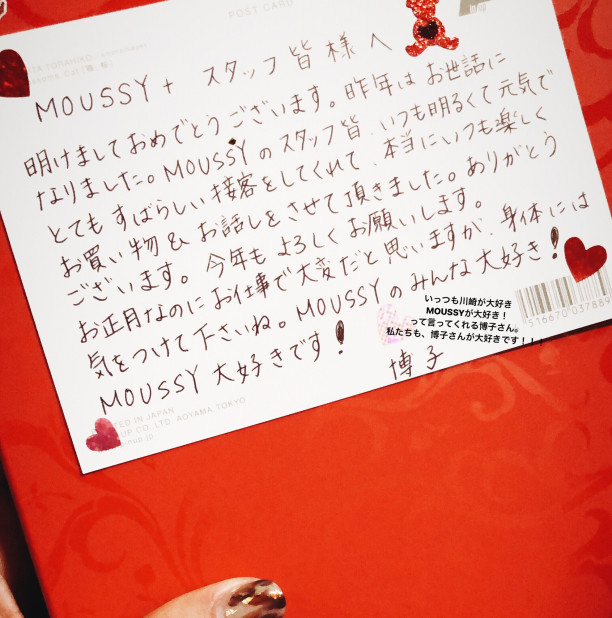 POST CARD
MOUSSY+ スタッフ皆様へ
明けましておめでとうございます。昨年はお世話に
なりました。MOUSSYのスタッフ皆、いつも明るくて元気で
とてもすばらしい接客をしてくれて、本当にいつも楽しく
お買い物&お話しをさせて頂きました。ありがとう
ございます。今年もよろしくお願いします。
お正月なのにお仕事で大変だと思いますが、身体には
気をつけて下さいね。MOUSSYのみんな大好き!
MOUSSY大好きです!
博子
いっつも川崎が大好き
MOUSSYが大好き!
って言ってくれる博子さん。
私たちも、博子さんが大好きです!!!
IN JAPAN
CO.,LTD. AOYAMA, TOKYO